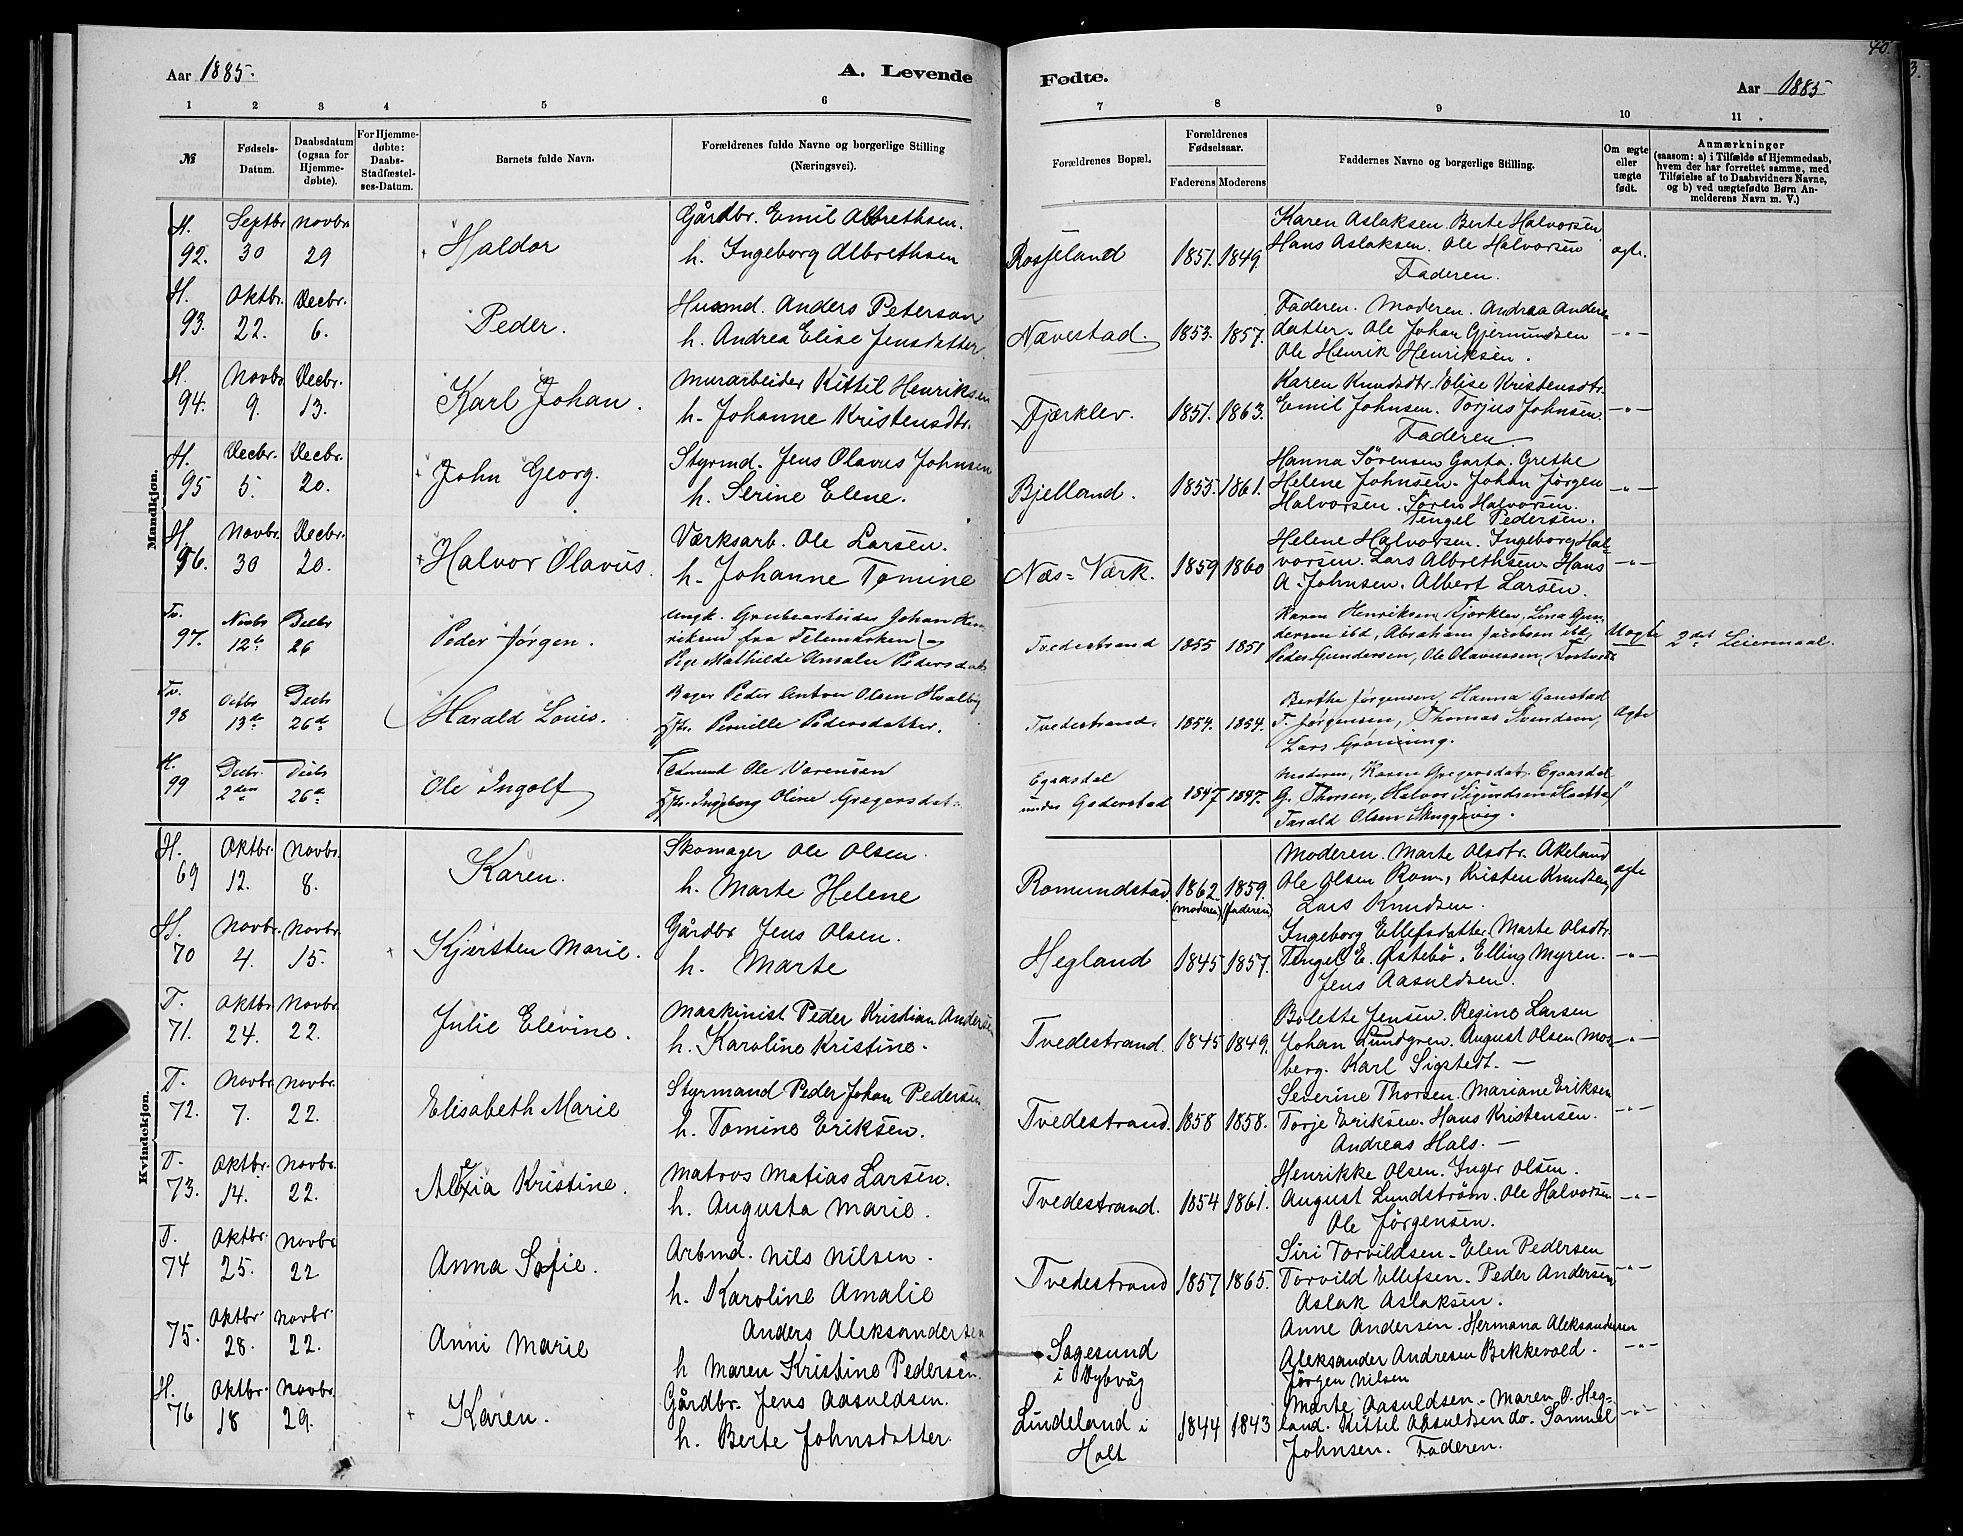 Aar 1885.
A. Levende
1 2 3 4 5 6
№
Fødsels-
Datum.
Daabsdatum
(ogsaa for
Hjemme-
døbte).
For Hjemme-
døbte:
Daabs-
Stadfæstel-
ses-Datum.
Barnets fulde Navn.
Forældrenes fulde Navne og borgerlige Stilling
(Næringsvei).
Mandkjøn.
H. Septbr Novbr Gårdbr. Emil Albrethsen.
92. 30 29 Haldor h. Ingeborg Albrethsen
H. Oktbr. Decbr. Husmd. Anders Peterson
93. 22. 6. Peder. h. Andrea Elise Jensdatter.
H. Novbr Decbr. Murarbeider Kittil Henriksen
94. 9. 13. Karl Johan. h. Johanne Kristensdtr.
H. Decbr. Decbr. Styrmd. Jens Olavus Johnsen
95 5. 20. John Georg. h. Serine Elene.
H. Novbr. Decbr. Værksarb. Ole Larsen.
96. 30 20. Halvor Olavus. h. Johanne Tomine
Tv. Novbr Decbr Ungk. Grubearbeider Johan Hen-
97. 12te 26 Peder Jørgen. riksen fra Telemarken og
Pige Mathilde Amalie Pedersdat.
Tv. Octbr Decbr Bager Peder Anton Olsen Hvalby
98 13de 26de Harald Louis. Hu. Pernille Pedersdatter.
H. Decbr. Decbr Ole
99 2den 26de Ole Ingolf Hu. Ingeborg Oline Gregersdat.
Kvindekjøn.
H. Oktbr. Novbr. Skomager Ole Olsen.
69 12. 8. Karen. h. Marte Helene
H. Novbr. Novbr. Gårdbr Jens Olsen.
70 4. 15. Kjersten Marie. h. Marte
T. Oktbr Novbr. Maskinist Peder Kristian Andersen
71. 24. 22. Julie Elevine. h. Karoline Kristine.
T. Novbr. Novbr. Styrmand Peder Johan Pedersen
72. 7. 22. Elisabeth Marie h. Tomine Eriksen.
T. Oktbr. Novbr. Matros Matias Larsen.
73. 14. 22. Kristine. h. Augusta Marie.
T. Oktbr. Novbr. Arbmd. Nils Nilsen.
74 25. 22 Anna Sofie. h. Karoline Amalie
Oktbr Novbr. Anders Aleksandersen
75. 28. 22. Anni Marie h Maren Kristine Pedersen.
H. Oktbr. Novbr. Gårdbr. Jens Aasuldsen.
76 18 29. Karen. h. Berte Johnsdatter.
40.
3.
Fødte.
Aar 1885
7 8 9 10 11
Forældrenes Bopæl.
Forældrenes
Fødselsaar.
Faderens Moderens
Faddernes Navne og borgerlige Stilling.
Om ægte
eller
uægte
født.
Anmærkninger
(saasom: a) i Tilfælde af Hjemmedaab,
hvem der har forrettet samme, med
Tilføielse af to Daabsvidners Navne,
og b) ved uægtefødte Børn An-
melderens Navn m. V.)
Karen Aslaksen Berte Halvorsen
Rosjeland 1851. 1849. Hans Aslaksen. Ole Halvorsen ægte.
Faderen.
Faderen. Moderen. Andrea Anders-
Nævestad. 1853. 1857. datter. Ole Johan Gjermundsen -"-
Ole Henrik Henriksen.
Karen Knudsdtr. Elise Kristensdtr.
Fjærklev. 1851. 1863. Emil Johnsen. Torjus Johnsen. -"-
Faderen.
Hanna Sørensen Garta. Grethe
Bjelland. 1855. 1861. Helene Johnsen. Johan Jørgen -"-
Halvorsen. Søren Halvorsen.
Tengel Pedersen.
Helene Halvorsen. Ingeborg Hal-
Næs=Værk. 1859 1860 vorsen. Lars Albrethsen. Hans -"-
A. Johnsen. Albert Larsen.
Karen Henriksen Kjørklev, Lina Gun-
Tvedestrand 1855 1851 dersen ibd, Abraham Jacobsen ibd, Uægte 2det Leiermaal.
Peder Gundersen, Ole Olavussen,
Berthe Jørgensen, Hanna Ganstad
Tvedestrand. 1854. 1854. T. Jørgensen, Thomas Svendsen, Ægte
Lars Grønning.
Egaasdal Moderen, Karen Gregersdat. Egaasdal
under Goderstad 1847 1847. G. Thorsen, Halvor Sigurdsen "
Tarald Olsen Skuggevig.
Moderen. Marte Olsdtr. Akeland
Romundstad. 1862. 1859. Ole Olsen Rom, Kristen Knudsen, ægte
(moderen) (faderen) Lars Knudsen.
Ingeborg Ellefsdatter. Marte Olsdtr.
Hegland 1845 1857. Tengel E. Østebø. Elling Myren. -"-
Jens Aasuldsen.
Bolette Jensen. Regine Larsen
Tvedestrand. 1845 1849. Johan Lundgren. August Olsen Mos- -"-
berg. Karl Sigstedt. —
Severine Thorsen. Mariane Eriksen
Tvedestrand. 1858 1858. Torje Eriksen. Hans Kristensen. -"-
Andreas Hals. —
Henrikke Olsen. Inger Olsen.
Tvedestrand. 1854 1861. August Lundstrøm. Ole Halvorsen -"-
Ole Jørgensen.
Siri Torvildsen. Elen Pedersen
Tvedestrand 1857 1865. Torvild Ellefsen. Peder Andersen, -"-
Aslak Aslaksen.
Anne Andersen. Hermana Aleksandersen
Sagesund Aleksander Andresen Bekkevold. -"-
i Dybvåg Jørgen Nilsen
Marte Aasuldsen. Maren O. Heg-
Lindeland i 1844 1843 land. Kittel Aasuldsen do. Samuel -"-
Holt Johnsen. Faderen.